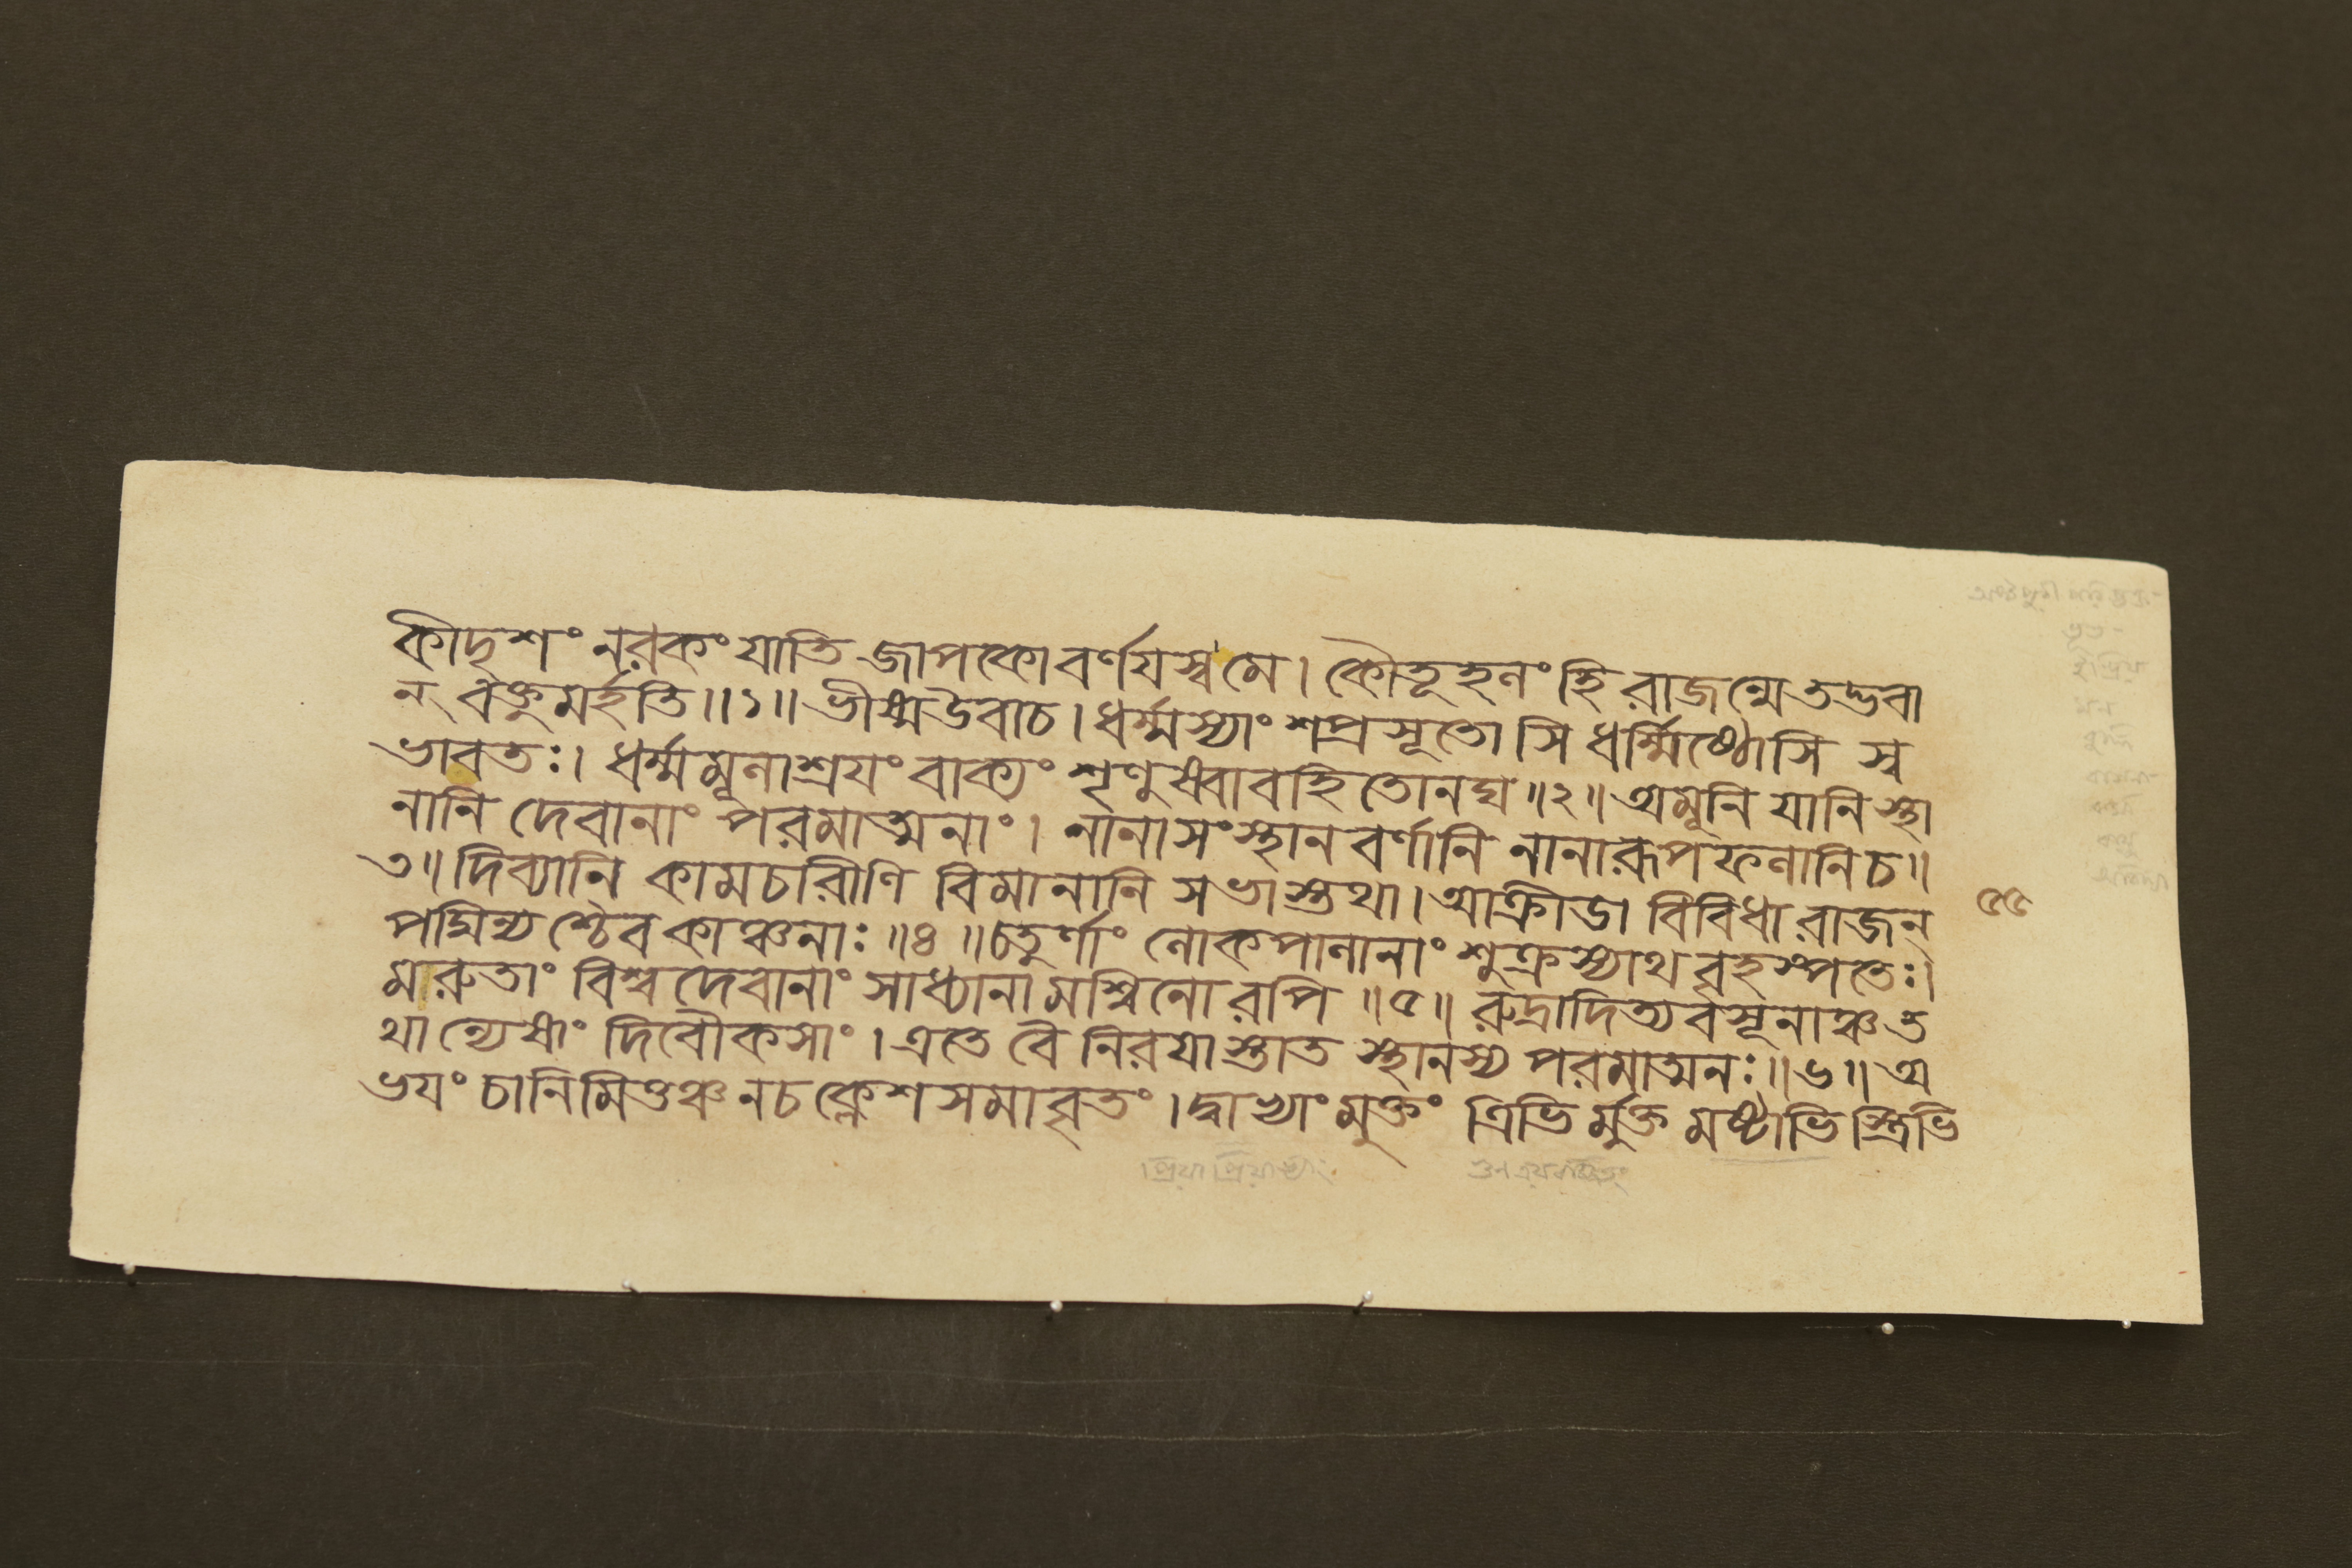 কীদৃশং নরকং যাতি জাপকো বর্ণযস্ব মে। কৌতূহলং হি রাজন্মে তদ্ভবা
ন্ বক্তুমর্হতি॥১॥ ভীষ্মউবাচ। ধর্ম্মস্যাংশপ্রসূতোসি ধর্ম্মিষ্ঠোসি স্ব
ভাবতঃ। ধর্ম্মমূলাশ্রযং বাক্যং শৃণুষ্বাবহিতোনঘ॥২॥ অমূনি যানি স্থা
নানি দেবানাং পরমাত্মনাং। নানাসংস্থানবর্ণানি নানারূপফলানিচ॥
৩॥ দিব্যানি কামচরীণি বিমানানি সভাস্তথা। আক্রীডা বিবিধা রাজন্
পদ্মিন্যশ্চৈব কাঞ্চনাঃ॥৪॥ চতুর্ণাং লোকপালানাং শুক্রস্যাথ বৃহস্পতেঃ।
মারুতাং বিশ্বদেবানাং সাধ্যানামশ্বিনোরপি॥৫॥ রুদ্রাদিত্যবসূনাঞ্চ ত
থান্যেষাং দিবৌকসাং। এতে বৈ নিরযাস্তাত স্থানস্য পরমাত্মনঃ॥৬॥ অ
ভযং চানিমিত্তঞ্চ নচ ক্লেশসমাবৃতং। দ্বাভ্যাং মুক্তং ত্রিভির্মুক্তমষ্টাভিস্ত্রিভি
৫৫
প্রিয়াপ্রিয়াভ্যাং